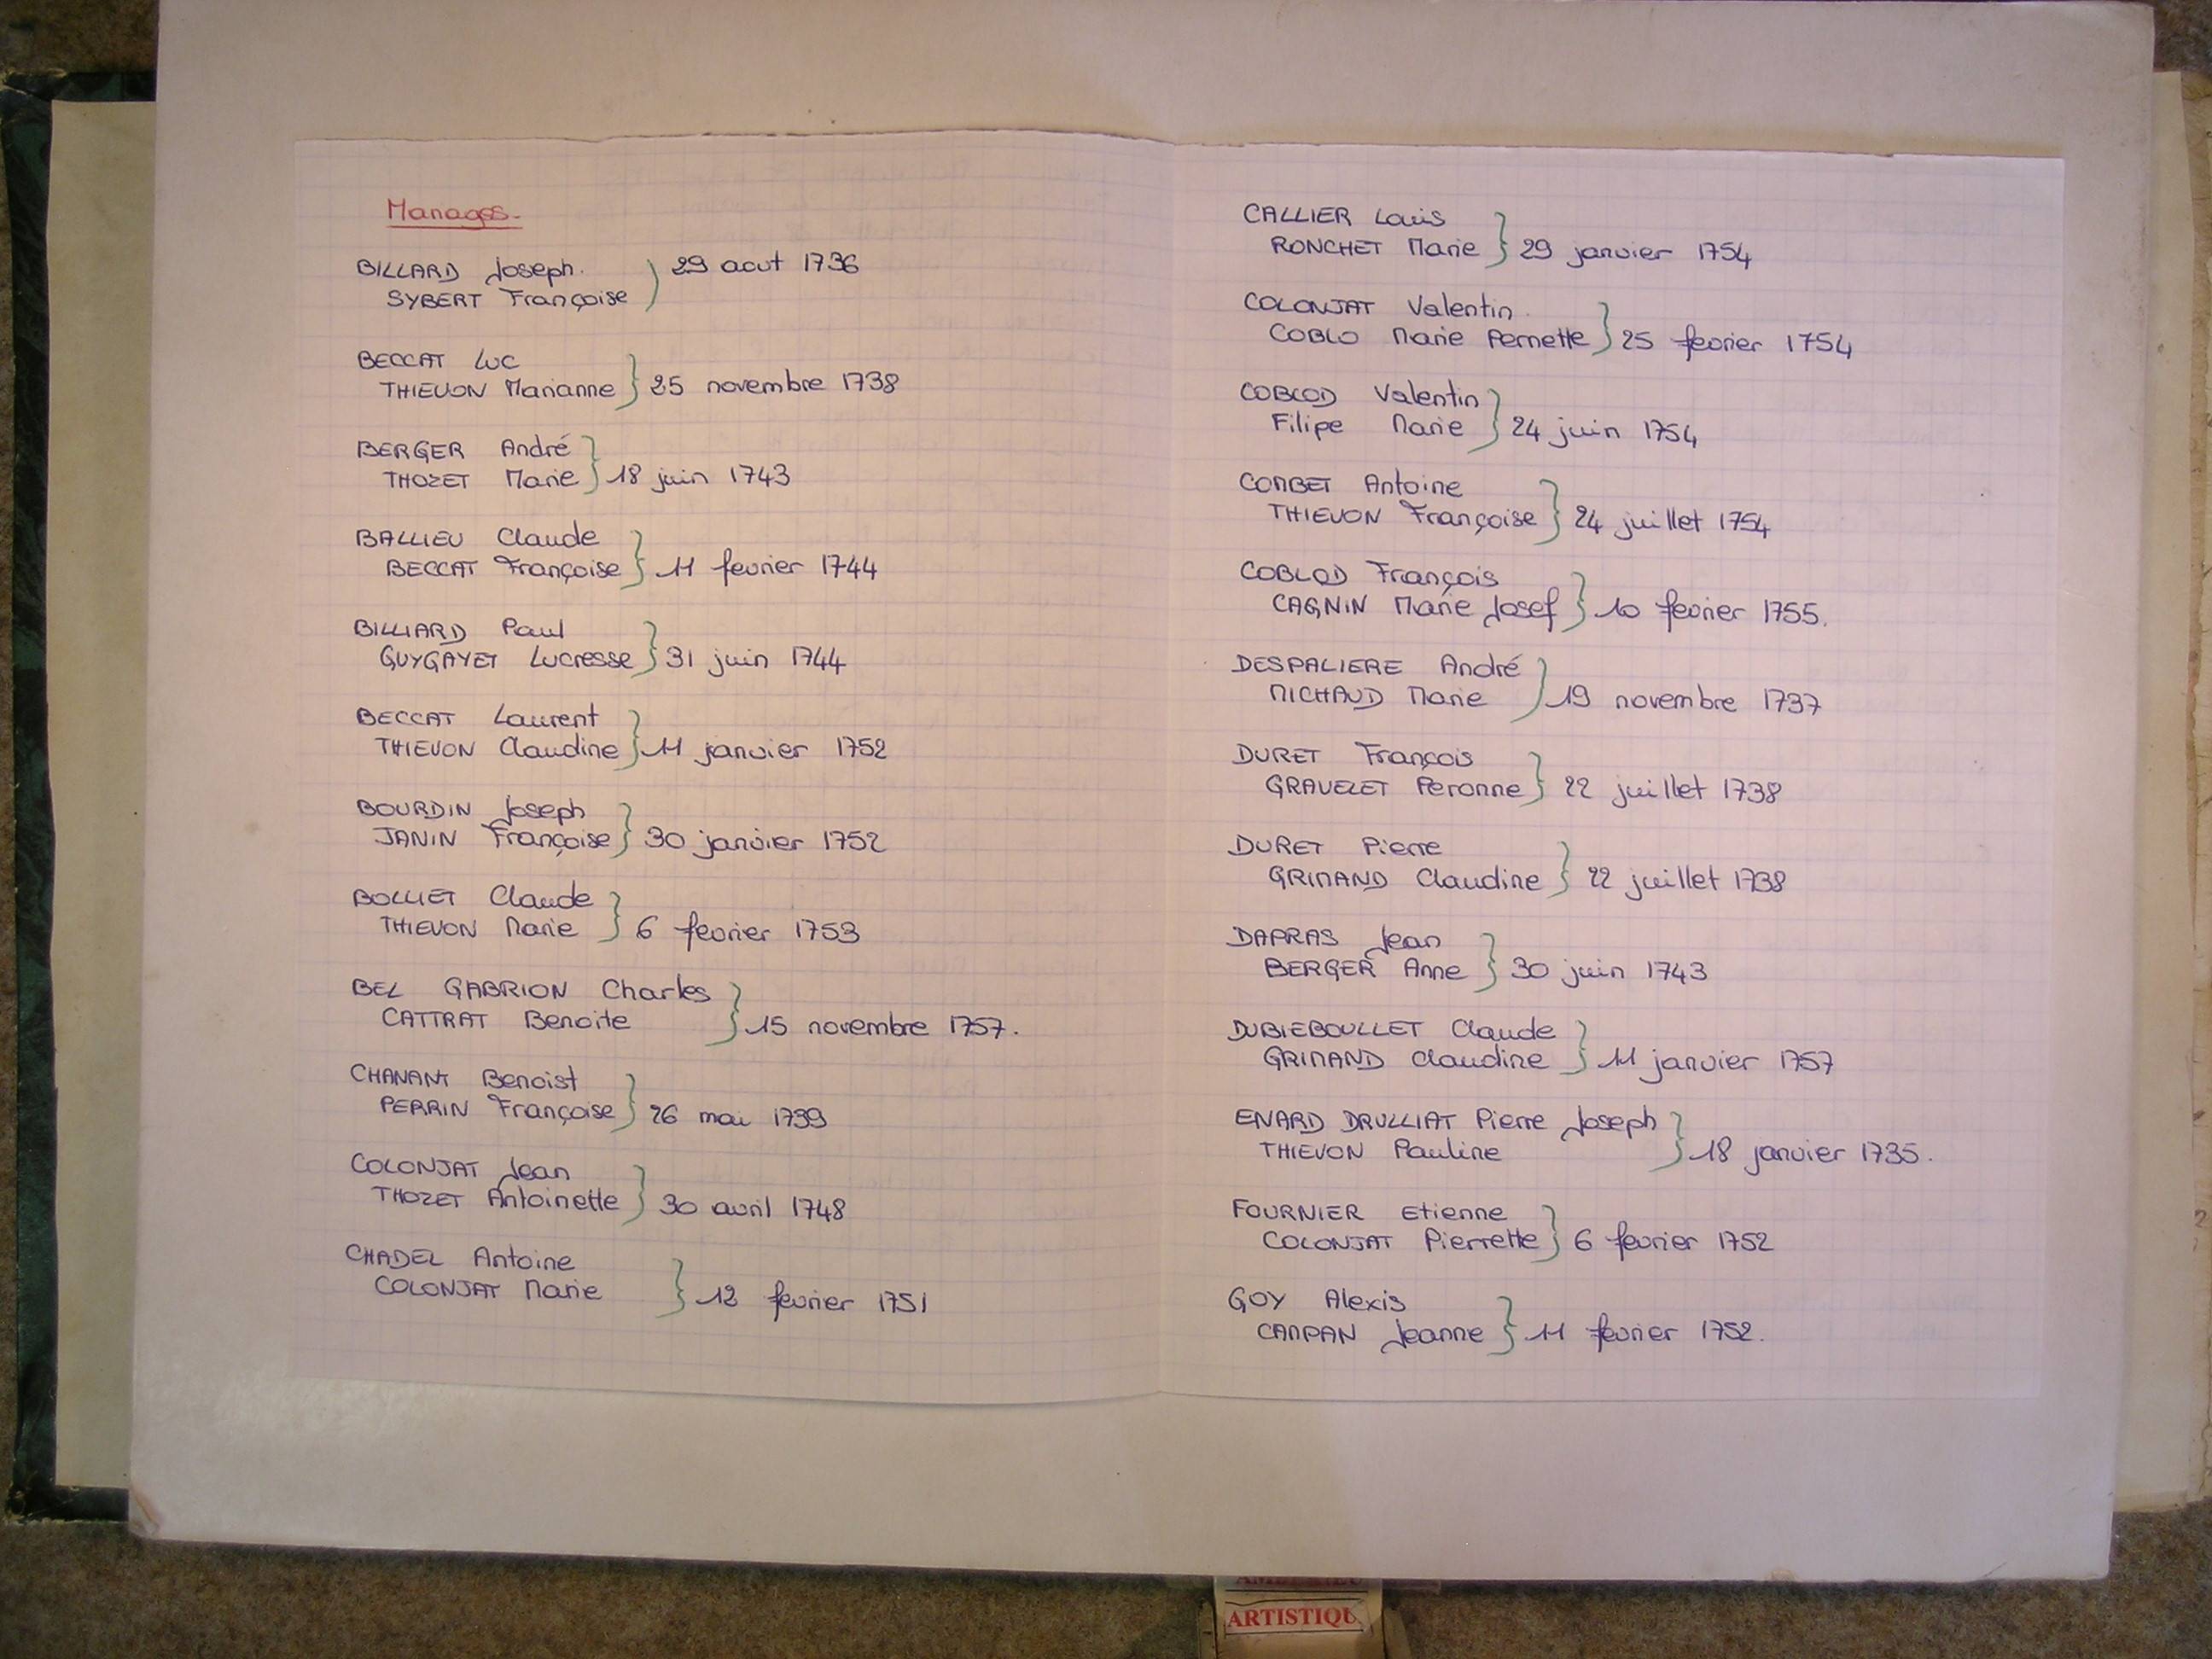 Mariages.
BILLARD Joseph. } 29 aout 1736
SYBERT Françoise
BECCAT Luc
THIEVON Marianne } 25 novembre 1738
BERGER André
THOZET Marie } 18 juin 1743
BALLIEU Claude
BECCAT Françoise } 11 fevrier 1744
BILLIARD Paul
GUYGAYET Lucresse } 31 juin 1744
BECCAT Laurent
THIEVON Claudine } 11 janvier 1752
BOURDIN Joseph
JANIN Françoise } 30 janvier 1752
BOLLIET Claude
THIEVON Marie } 6 fevrier 1753
BEL GABRION Charles
CATTRAT Benoite } 15 novembre 1757.
CHANANT Benoist
PERRIN Françoise } 26 mai 1739
COLONJAT Jean
THOZET Antoinette } 30 avril 1748
CHADEL Antoine
COLONJAT Marie } 12 fevrier 1751
CALLIER Louis
RONCHET Marie } 29 janvier 1754
COLONJAT Valentin
COBLO Marie Pernette } 25 fevrier 1754
COBLOD Valentin
Filipe Marie } 24 juin 1754
COMBET Antoine
THIEVON Françoise } 24 juillet 1754
COBLOD François
CAGNIN Marie Josef } 10 fevrier 1755.
DESPALIERE André
MICHAUD Marie } 19 novembre 1737
DURET François
GRAVELET Peronne } 22 juillet 1738
DURET Pierre
GRIMAND Claudine } 22 juillet 1738
DAPRAS Jean
BERGER Anne } 30 juin 1743
DUBIEBOULLET Claude
GRIMAND Claudine } 11 janvier 1757
ENARD DRULLIAT Pierre Joseph
THIEVON Pauline } 18 janvier 1735.
FOURNIER Etienne
COLONJAT Pierrette } 6 fevrier 1752
GOY Alexis
CAMPAN Jeanne } 11 fevrier 1752.
ARTISTIQU